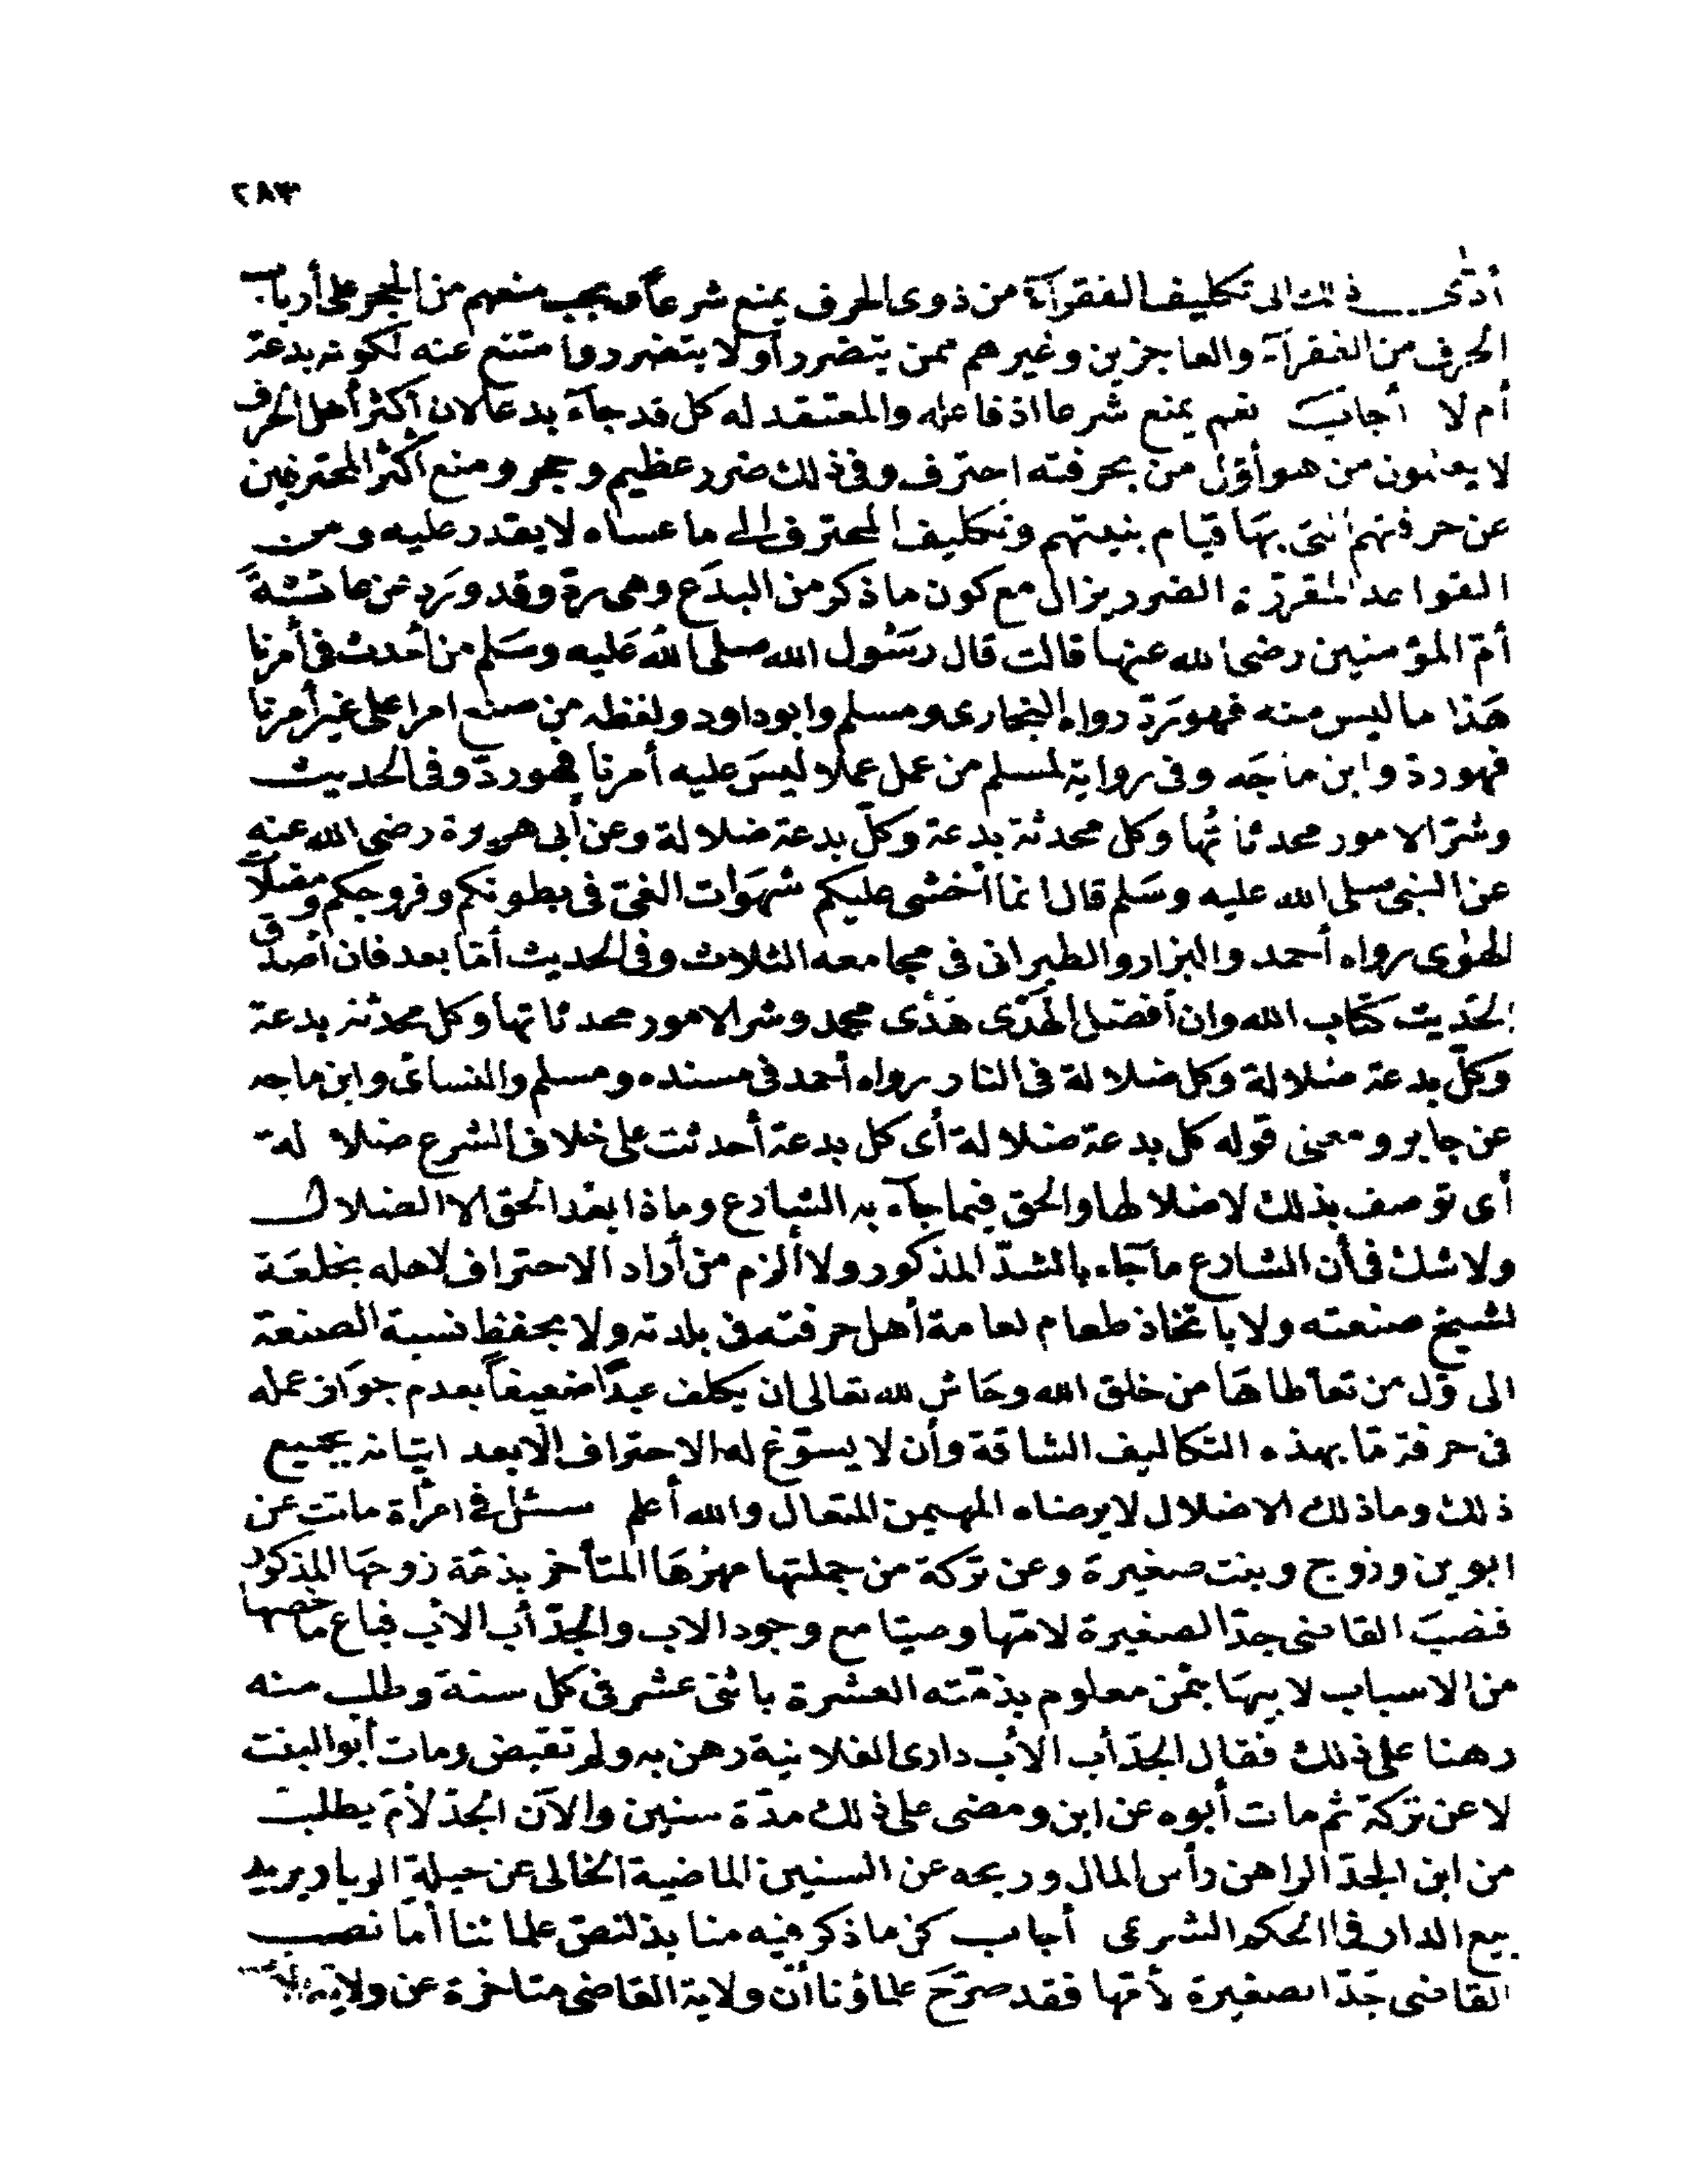 ٢٨٣
أدّى ذلك الى تكليف الفقرآء من ذوى الحرف يمنع شرعاً ويجب منعهم من الحجر على أرباب
الحرف من الفقرآء والعاجزين وغيرهم ممن يتضرر أو لا يتضرر وما متنع عنه لكونه بدعة
أم لا أجابَ نعم يمنع شرعا اذ فاعله والمعتقد له كل قد جآء بدعا لان أكثر أهل الحرف
لا يعلمون من هو أوّل من بحرفته احترف وفى ذلك ضرر عظيم وحجر ومنع أكثر المحترفين
عن حرفتهم التى بهَا قيام بنيتهم وتكليف المحترف الى ما عساه لا يقدر عليه ومن
القواعد المقررة الضرر يزال مع كون ما ذكر من البدَع وهى ردّ وقد ورَد عن عائشةَ
أمّ المؤمنين رضى الله عنها قالت قال رسُول الله صلى الله عَليه وسَلم من أحدث فى أمرنا
هَذا ما ليس منه فهو ردّ رواه البخارى ومسلم وابو داود ولفظه من صنع امرا على غير أمرنا
فهو ردّ وابن ماجَه وفى رواية لمسلم من عمل عملا ليسَ عليه أمرنا فهو ردّ وفى الحديث
وشرّ الامور محدثاتُها وكل محدثة بدعة وكلّ بدعة ضلالة وعن أبى هريرة رضى الله عنه
عن النبى صلى الله عليه وسَلم قال انما أخشى عليكم شهوَات الغىّ فى بطونكم وفروجكم ومضلات
الهوٰى رواه أحمد والبزار والطبرانى فى مجامعه الثلاث وفى الحديث أمّا بعد فان أصدق
الحَديث كتاب الله وان أفضل الهَدْى هَدْى محمد وشر الامور محدثاتها وكل محدثة بدعة
وكلّ بدعة ضلالة وكل ضلالة فى النار رواه أحمد فى مسنده ومسلم والنسائى وابن ماجه
عن جابر ومعنى قوله كل بدعة ضلالة أى كل بدعة أحدثت على خلاف الشرع ضلالة
أى توصف بذلك لاضلالها والحق فيما جآء به الشارع وماذا بعْد الحق الا الضلال
ولا شك فى أن الشارع ما جآء بالشدّ المذكور ولا ألزم من أراد الاحتراف لاهله بخلعَة
لشيخ صنعته ولا باتخاذ طعام لعامة أهل حرفته فى بلدته ولا بحفظ نسبة الصنعة
الى أول من تعاطاهَا من خلق الله وحَاش لله تعالى ان يكلف عبدًا ضعيفاً بعدم جوَاز عمله
فى حرفة مّا بهذه التكاليف الشاقة وأن لا يسوّغ له الاحتراف الا بعد اتيانه بجميع
ذلك وما ذلك الا ضلال لا يرضاه المهيمن المتعال والله أعلم سئل فى امرأة ماتت عن
ابوين وزوج وبنت صغيرة وعن تركة من جملتها مهرُهَا المتأخر بذمّة زوجهَا المذكور
فنصبَ القاضى جدّ الصغيرة لامّها وصيّا مع وجود الاب والجدّ أب الأب فباع ما خصها
من الاسباب لابيهَا بثمن معلوم بذمّته العشرة باثنى عشر فى كل سنة وطلب منه
رهنا على ذلك فقال الجدّ أب الأب دارى الفلانية رهن به ولم تقبض ومات أبو البنت
لا عن تركة ثم مات أبوه عن ابن ومضى على ذلك مدّة سنين والآن الجدّ لأمّ يطلب
من ابن الجدّ الراهن رأس المال وربحه عن السنين الماضية الخالى عن حيلة الربا ويريد
بيع الدار فما الحكم الشرعى أجاب كل ما ذكر فيه منابذ لنصّ علمائنا أما نصب
القاضى جَدّ الصغيرة لأمّها فقد صرّحَ علماؤنا أنّ ولاية القاضى متاخرة عن ولاية